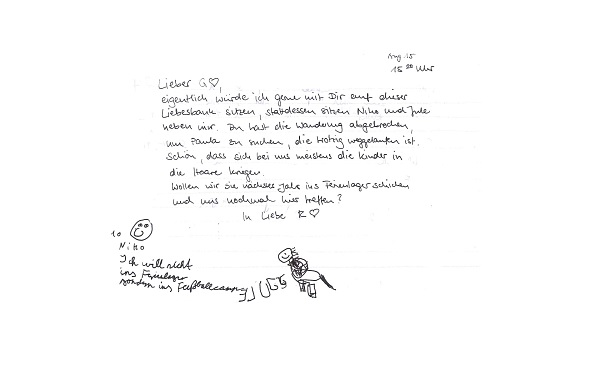 Aug. 15
15 20 Uhr
Lieber G♡,
eigentlich würde ich gerne mit Dir auf dieser
Liebesbank sitzen, stattdessen sitzen Niko und Jule
neben mir. Du hast die Wanderung abgebrochen,
um Paula zu suchen, die trotzig weggelaufen ist.
Schön, dass sich bei uns meistens die Kinder in
die Haare kriegen.
Wollen wir sie nächstes Jahr ins Ferienlager schicken
und uns nochmal hier treffen?
In Liebe R♡
10
Niko
Ich will nicht
ins Ferienlager
sondern ins Fußballcamp